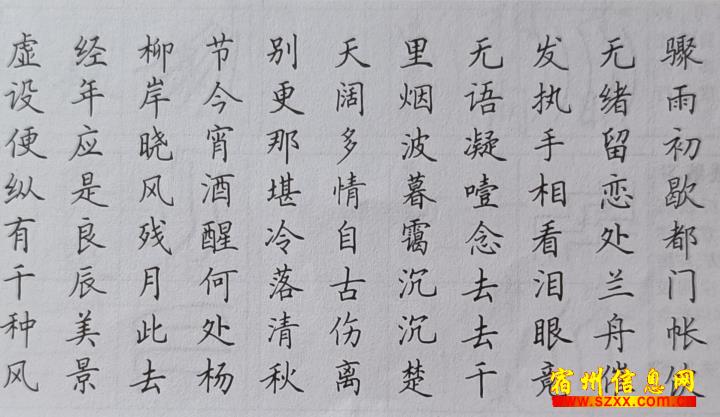 骤雨初歇都门帐饮
无绪留恋处兰舟催
发执手相看泪眼竟
无语凝噎念去去千
里烟波暮霭沉沉楚
天阔多情自古伤离
别更那堪冷落清秋
节今宵酒醒何处杨
柳岸晓风残月此去
经年应是良辰美景
虚设便纵有千种风
宿州信息网
www.szxx.com.cn